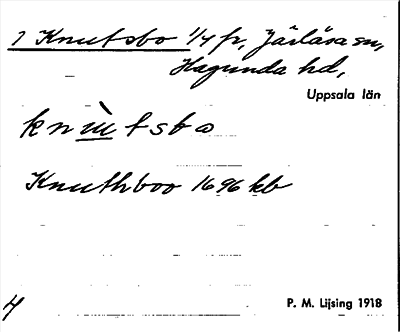 1 Knutsbo 1/4 fr, Järlåsa sn,
Hagunda hd,
Uppsala län
knùtsbo
Knuthboo 1696 kb
4 P. M. Lijsing 1918